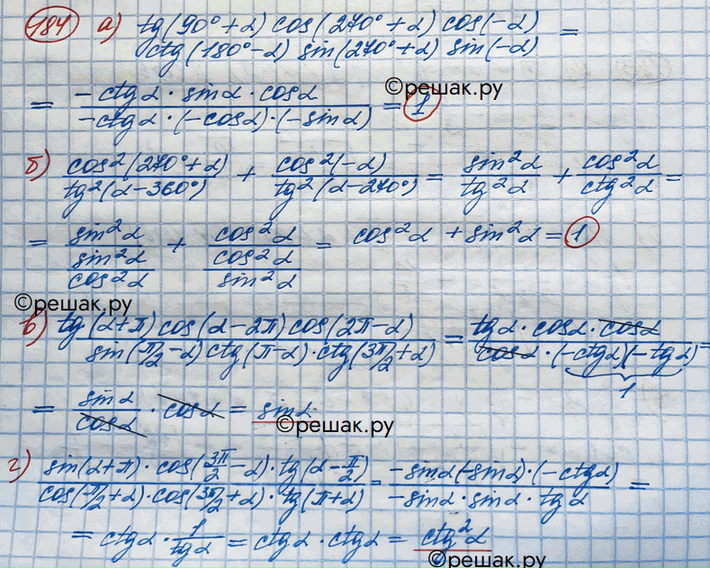 484 а) tg(90°+α) cos(270°+α) cos(-α)
ctg(180°-α) sin(270°+α) sin(-α) =
= -ctgα · sinα · cosα
-ctgα · (-cosα) · (-sinα) = 1
©решак.ру
б) cos²(270°+α)
tg²(α-360°) + cos²(-α)
tg²(α-270°) = sin²α
tg²α + cos²α
ctg²α =
= sin²α
sin²α
cos²α + cos²α
cos²α
sin²α = cos²α + sin²α = 1
©решак.ру
в) tg(α+π) cos(α-2π) cos(2π-α)
sin(π/2-α) ctg(π-α) · ctg(3π/2+α) = tgα · cosα · cosα
cosα · (-ctgα)(-tgα) =
1
= sinα
cosα · cosα = sinα
©решак.ру
г) sin(α+π) · cos(3π/2-α) · tg(α-π/2)
cos(π/2+α) · cos(3π/2+α) · tg(π+α) = -sinα(-sinα) · (-ctgα)
-sinα · sinα · tgα =
= ctgα · 1
tgα = ctgα · ctgα = ctg²α
©решак.ру